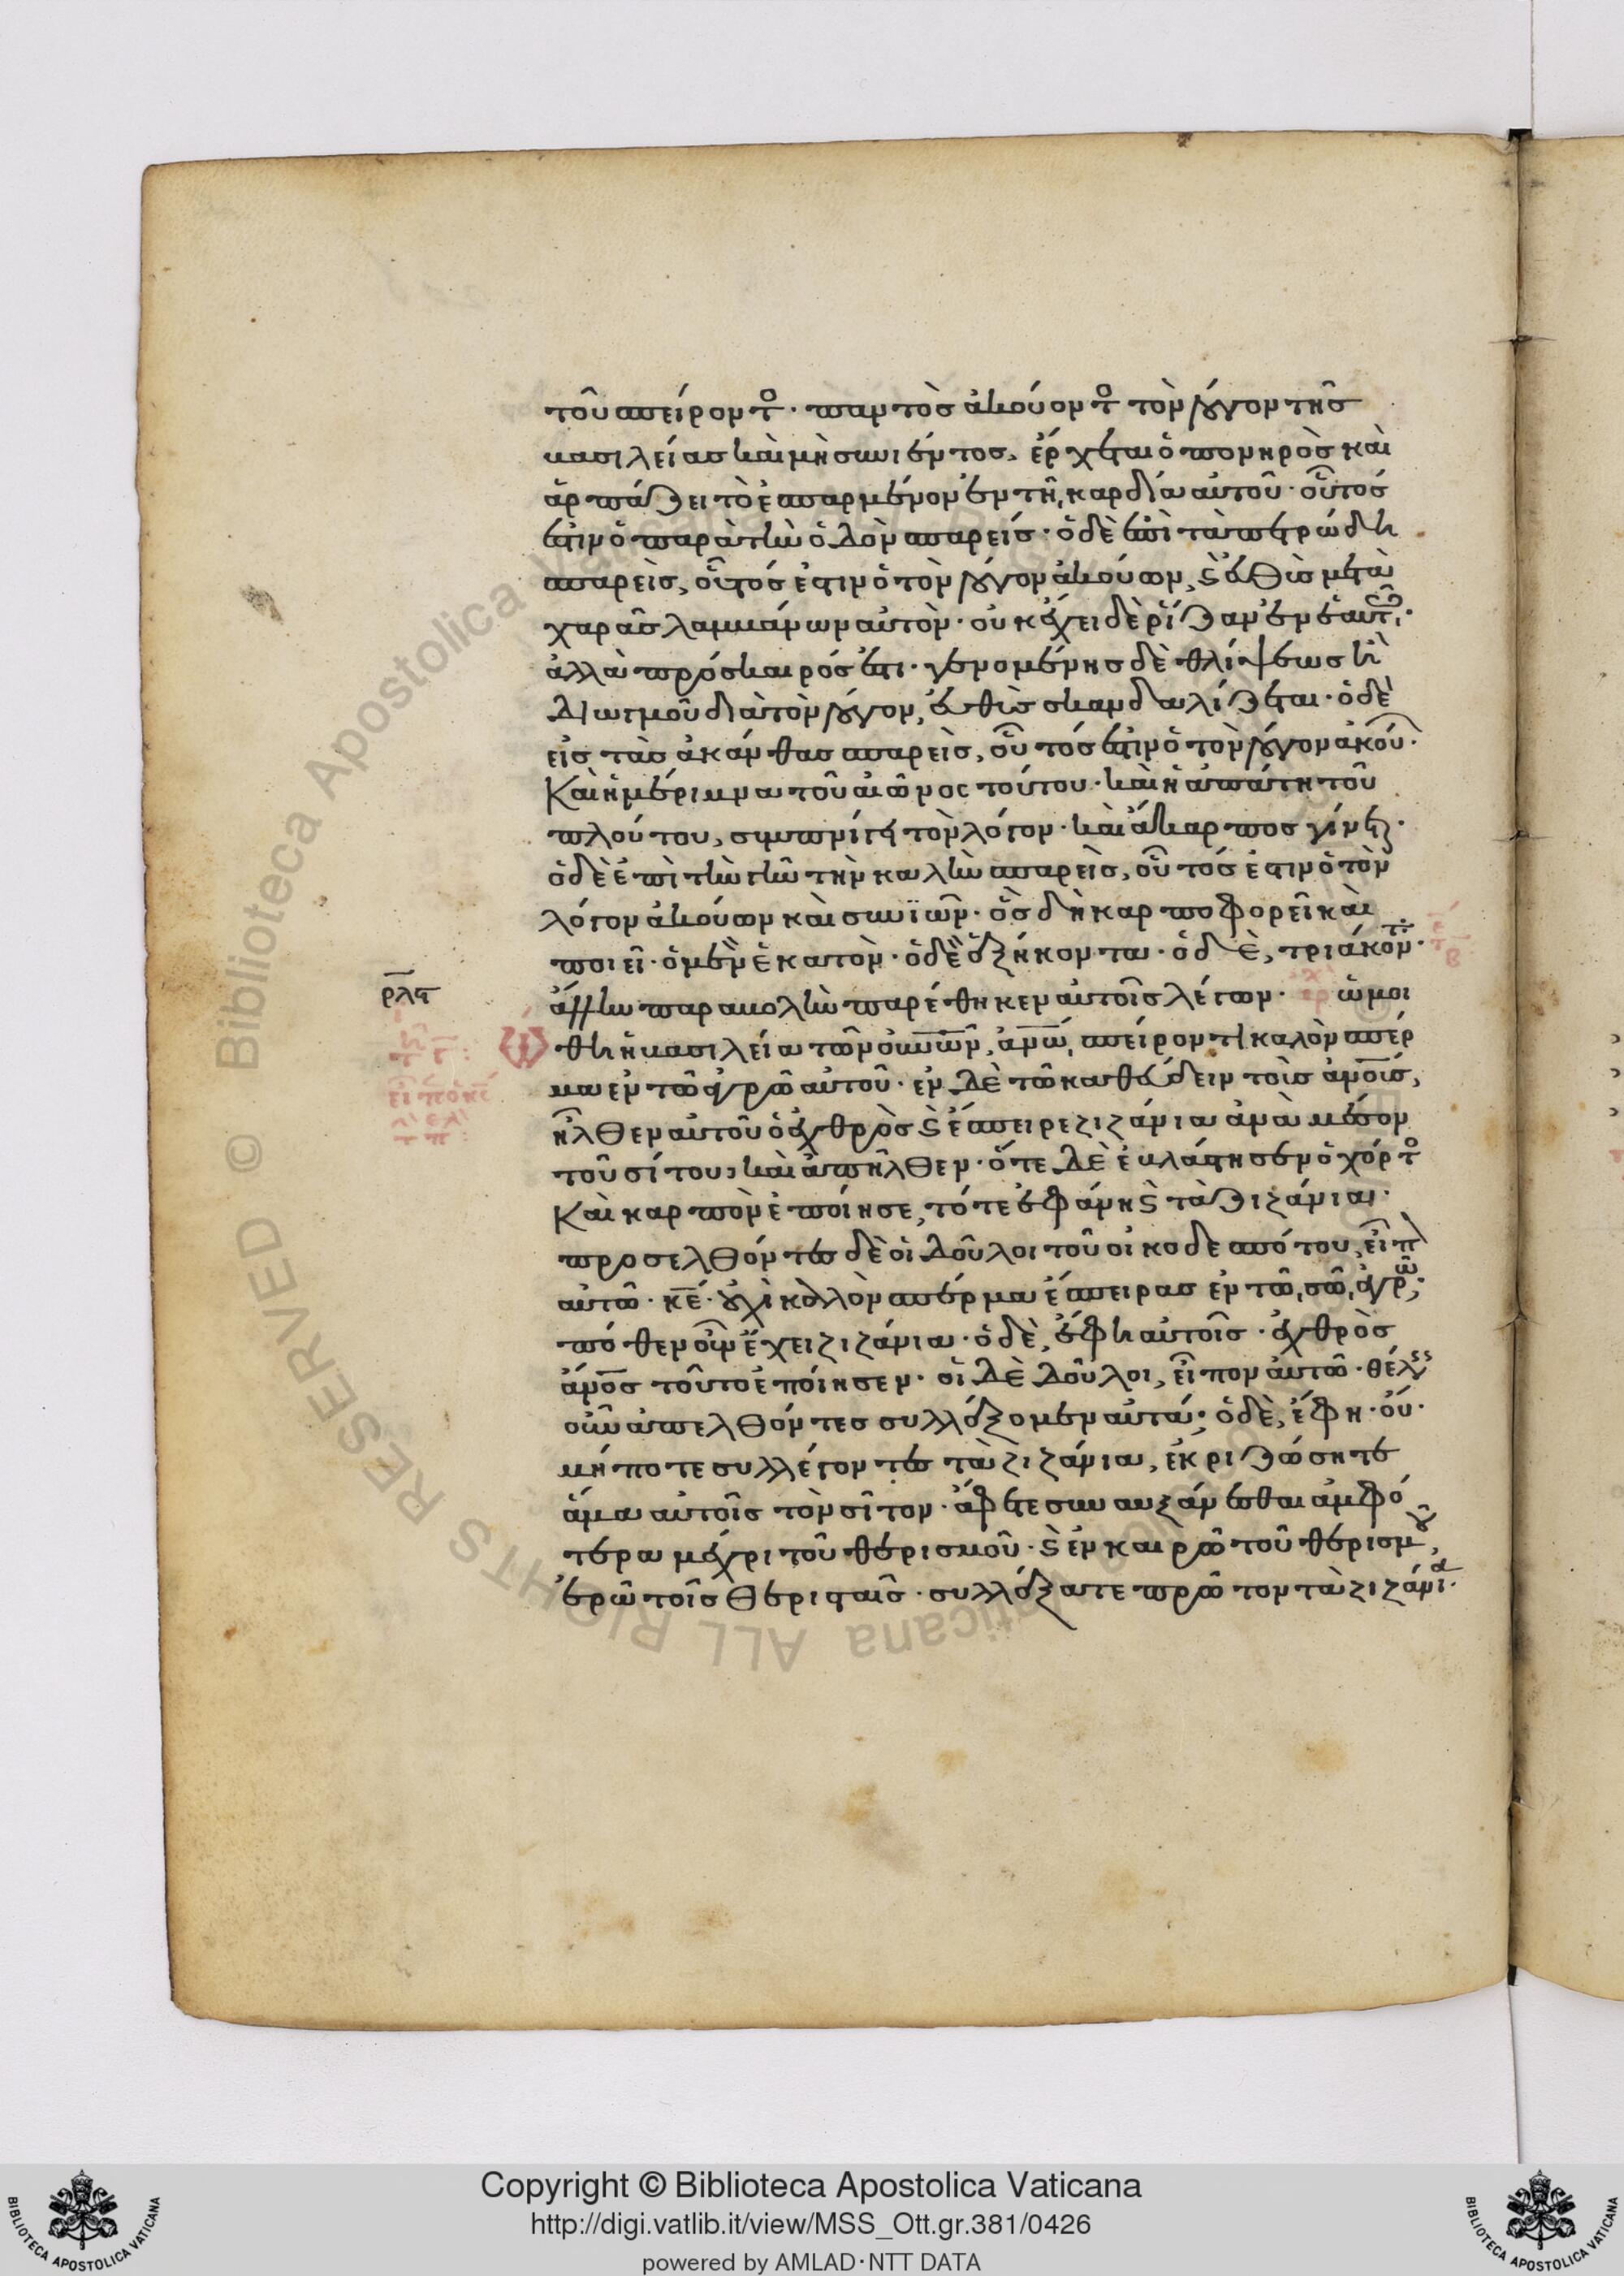 τοῦ σπείροντο· παντὸς ἀκούοντο τὸν λόγον τῆς
βασιλείας καὶ μὴ συνιέντος, ἔρχεται ὁ πονηρὸς καὶ
ἁρπάζει τὸ ἐσπαρμένον ἐν τῆ καρδία αὐτοῦ· οὗτός
ἐστιν ὁ παρὰ τὴν ὁδὸν σπαρείς· ὁ δὲ ἐπὶ τὰ πετρώδη
σπαρεὶς, οὗτός ἐστιν ὁ τὸν λόγον ἀκούων, ϗ εὐθὺς μετὰ
χαρᾶς λαμβάνων αὐτὸν· οὐκ ἔχει δὲ ῥίζαν ἐν ἑαυτῶ·
ἀλλὰ πρόσκαιρός ἐστι· γενομένης δὲ θλίψεως ἢ
διωγμοῦ διὰ τὸν λόγον, εὐθὺς σκανδαλίζεται· ὁ δὲ
εἰς τὰς ἀκάνθας σπαρεὶς, οὗτός ἐστιν ὁ τὸν λόγον ἀκού·
Καὶ ἡ μέριμνα τοῦ αἰῶνος τούτου· καὶ ἡ ἀπάτη τοῦ
πλούτου, συμπνίγει τὸν λόγον· καὶ ἄκαρπος γίνεται·
ὁ δὲ ἐπὶ τὴν γῆν τὴν καλὴν σπαρεὶς, οὗτός ἐστιν ὁ τὸν
λόγον ἀκούων καὶ συνϊῶν· ὃς δὴ καρποφορεῖ καὶ
ποιεῖ· ὁ μὲν ἑκατὸν· ὁ δὲ ἑξήκοντα· ὁ δὲ, τριάκοντ·
ρλϛ
ἄλλην παραβολὴν παρέθηκεν αὐτοῖς λέγων· ὡμοι
θη ἡ βασιλεία τῶν οὐνῶν, ἀνῶ, σπείροντι καλὸν σπέρ
μα ἐν τῶ ἀγρῶ αὐτοῦ· ἐν δὲ τῶ καθεύδειν τοὺς ἀνοῖς,
ἦλθεν αὐτοῦ ὁ ἐχθρὸς ϗ ἔσπειρε ζιζάνια ἀνὰ μέσον
τοῦ σίτου, καὶ ἀπῆλθεν· ὅτε δὲ ἐβλάστησεν ὁ χόρτο
Καὶ καρπὸν ἐποίησε, τότε ἐφάνη ϗ τὰ ζιζάνια·
προσελθόντες δὲ οἱ δοῦλοι τοῦ οἰκοδεσπότου, εἶπ
αὐτῶ· κε· οὐχὶ καλὸν σπέρμα ἔσπειρας ἐν τῶ σῶ ἀγρῶ;
πόθεν οὖν ἔχει ζιζάνια· ὁ δὲ, ἔφη αὐτοῖς· ἐχθρὸς
ἄνος τοῦτο ἐποίησεν· οἱ δὲ δοῦλοι, εἶπον αὐτῶ· θέλεις
οὖν ἀπελθόντες συλλέξομεν αὐτά; ὁ δὲ, ἔφη· οὔ·
μήποτε συλλέγοντες τὰ ζιζάνια, ἐκριζώσητε
ἅμα αὐτοῖς τὸν σῖτον· ἄφετε συναυξάνεσθαι ἀμφό
τερα μέχρι τοῦ θερισμοῦ· ϗ ἐν καιρῶ τοῦ θερισμοῦ,
ἐρῶ τοῖς θερισταῖς· συλλέξατε πρῶτον τὰ ζιζάνια·
Copyright © Biblioteca Apostolica Vaticana
http://digi.vatlib.it/view/MSS_Ott.gr.381/0426
powered by AMLAD·NTT DATA
BIBLIOTECA APOSTOLICA VATICANA
BIBLIOTECA APOSTOLICA VATICANA
Biblioteca Apostolica Vaticana
ALL RIGHTS RESERVED ©